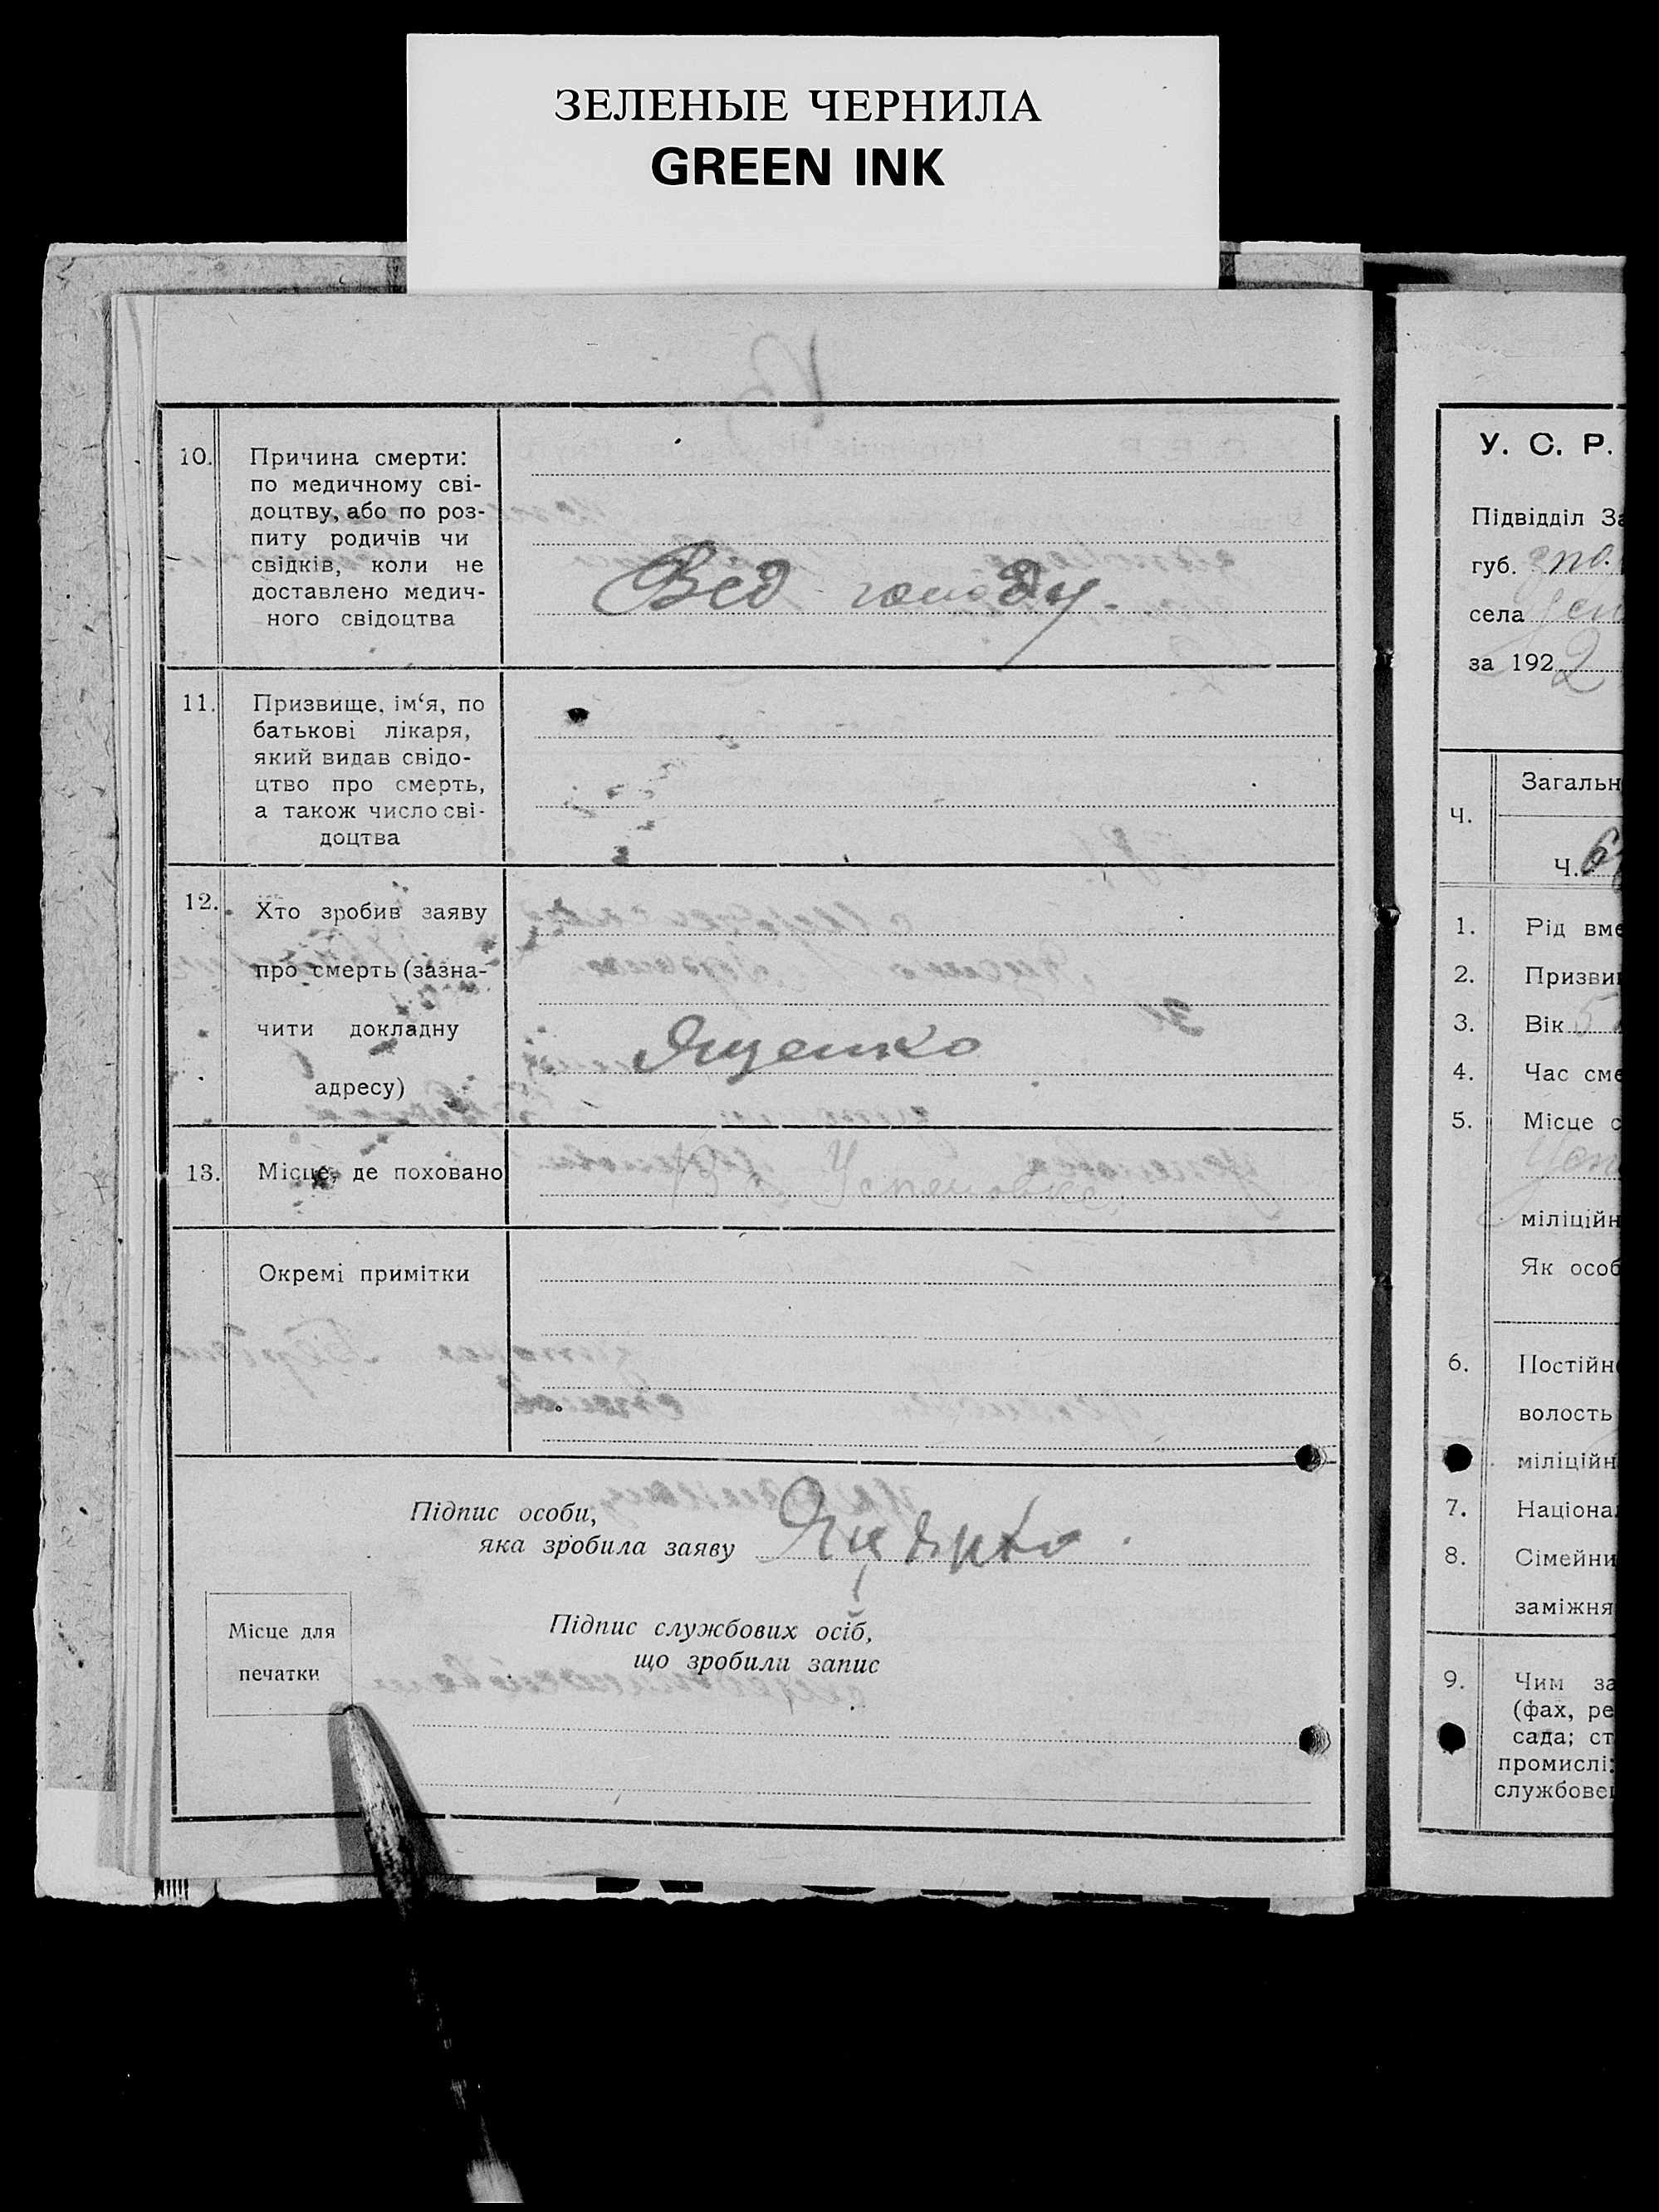 ЗЕЛЕНЫЕ ЧЕРНИЛА
GREEN INK
10. Причина смерти:
по медичному сві-
доцтву, або по роз-
питу родичів чи
свідків, коли не
доставлено медич-
ного свідоцтва
Вед голоду
11. Призвище, ім‘я, по
батькові лікаря,
який видав свідо-
цтво про смерть,
а також число сві-
доцтва
12. Хто зробив заяву
про смерть (зазна-
чити докладну
адресу)
Яценко
13. Місце, де поховано
В с. Успеновке
Окремі примітки
Підпис особи,
яка зробила заяву Яценко
Місце для
печатки
Підпис службових осіб,
що зробили запис
У. С. Р.
Підвідділ За
губ. Зпо.
села Успе
за 1922
Загальн
Ч.
Ч. 6
1. Рід вме
2. Призви
3. Вік 5
4. Час сме
5. Місце с
Успе
міліційн
Як особ
6. Постійн
волость
міліційн
7. Націона
8. Сімейни
заміжня
9. Чим за
(фах, ре
сада; ст
промислі:
службове